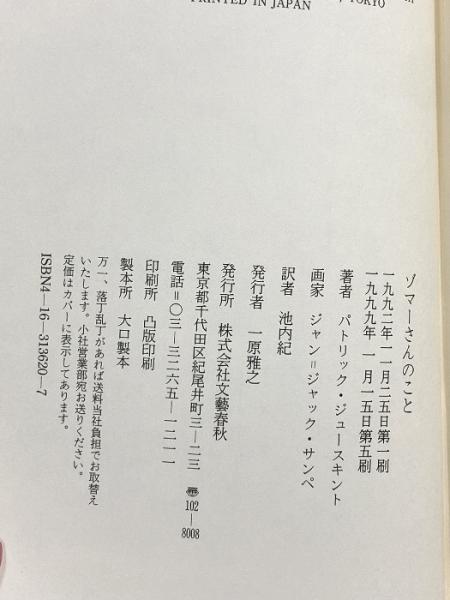 ゾマーさんのこと
一九九二年一一月二五日第一刷
一九九九年 一月一五日第五刷
著者 パトリック・ジュースキント
画家 ジャン＝ジャック・サンペ
訳者 池内紀
発行者 一原雅之
発行所 株式会社文藝春秋
東京都千代田区紀尾井町三―二三 〒102―8008
電話＝〇三―三二六五―一二一一
印刷所 凸版印刷
製本所 大口製本
万一、落丁乱丁があれば送料当社負担でお取替え
いたします。小社営業部宛お送りください。
定価はカバーに表示してあります。
ISBN4―16―313620―7
PRINTED IN JAPAN
, TOKYO